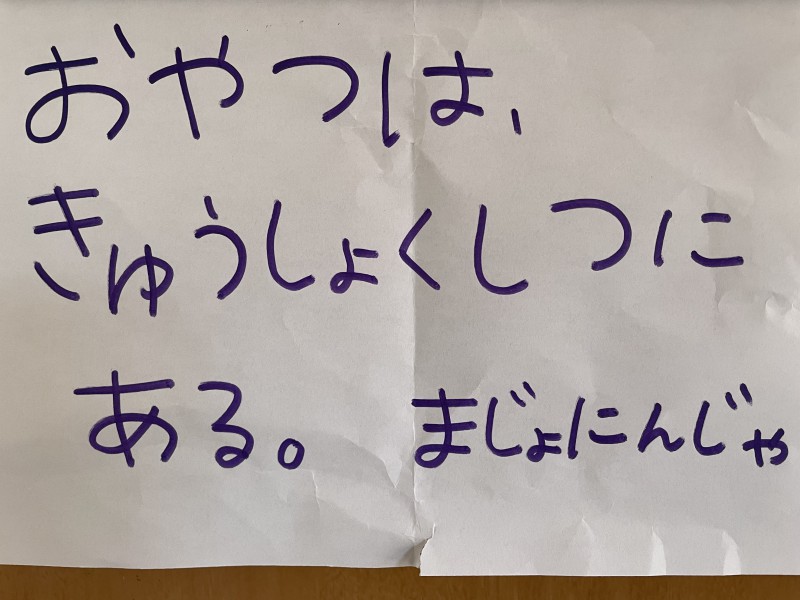 おやつは、
きゅうしょくしつに
ある。 まじょにんじゃ